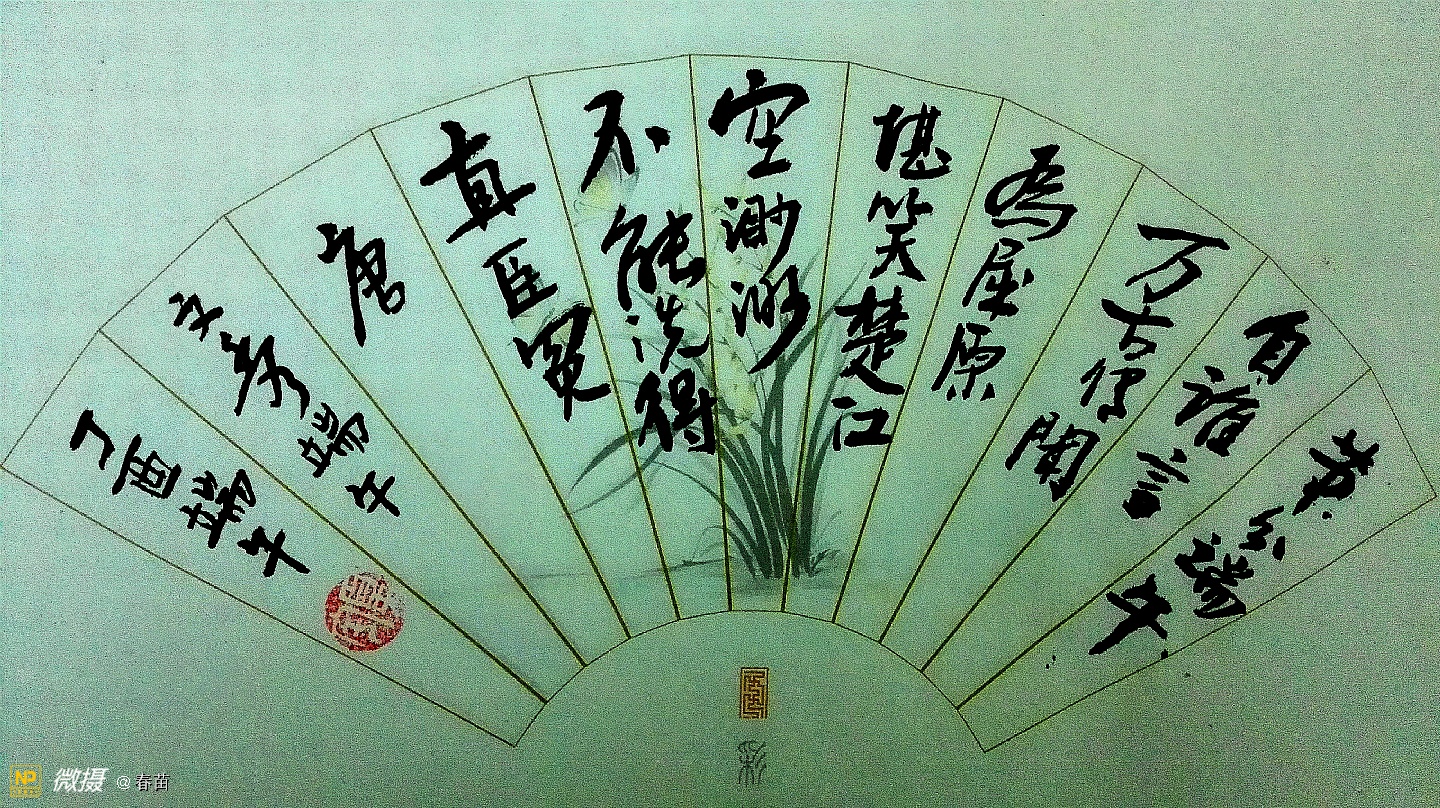 节分端午
自谁言
万古传闻
為屈原
堪笑楚江
空渺渺
不能洗得
直臣冤
唐
文秀端午
丁酉端午
彩
NP 微摄 @春苗